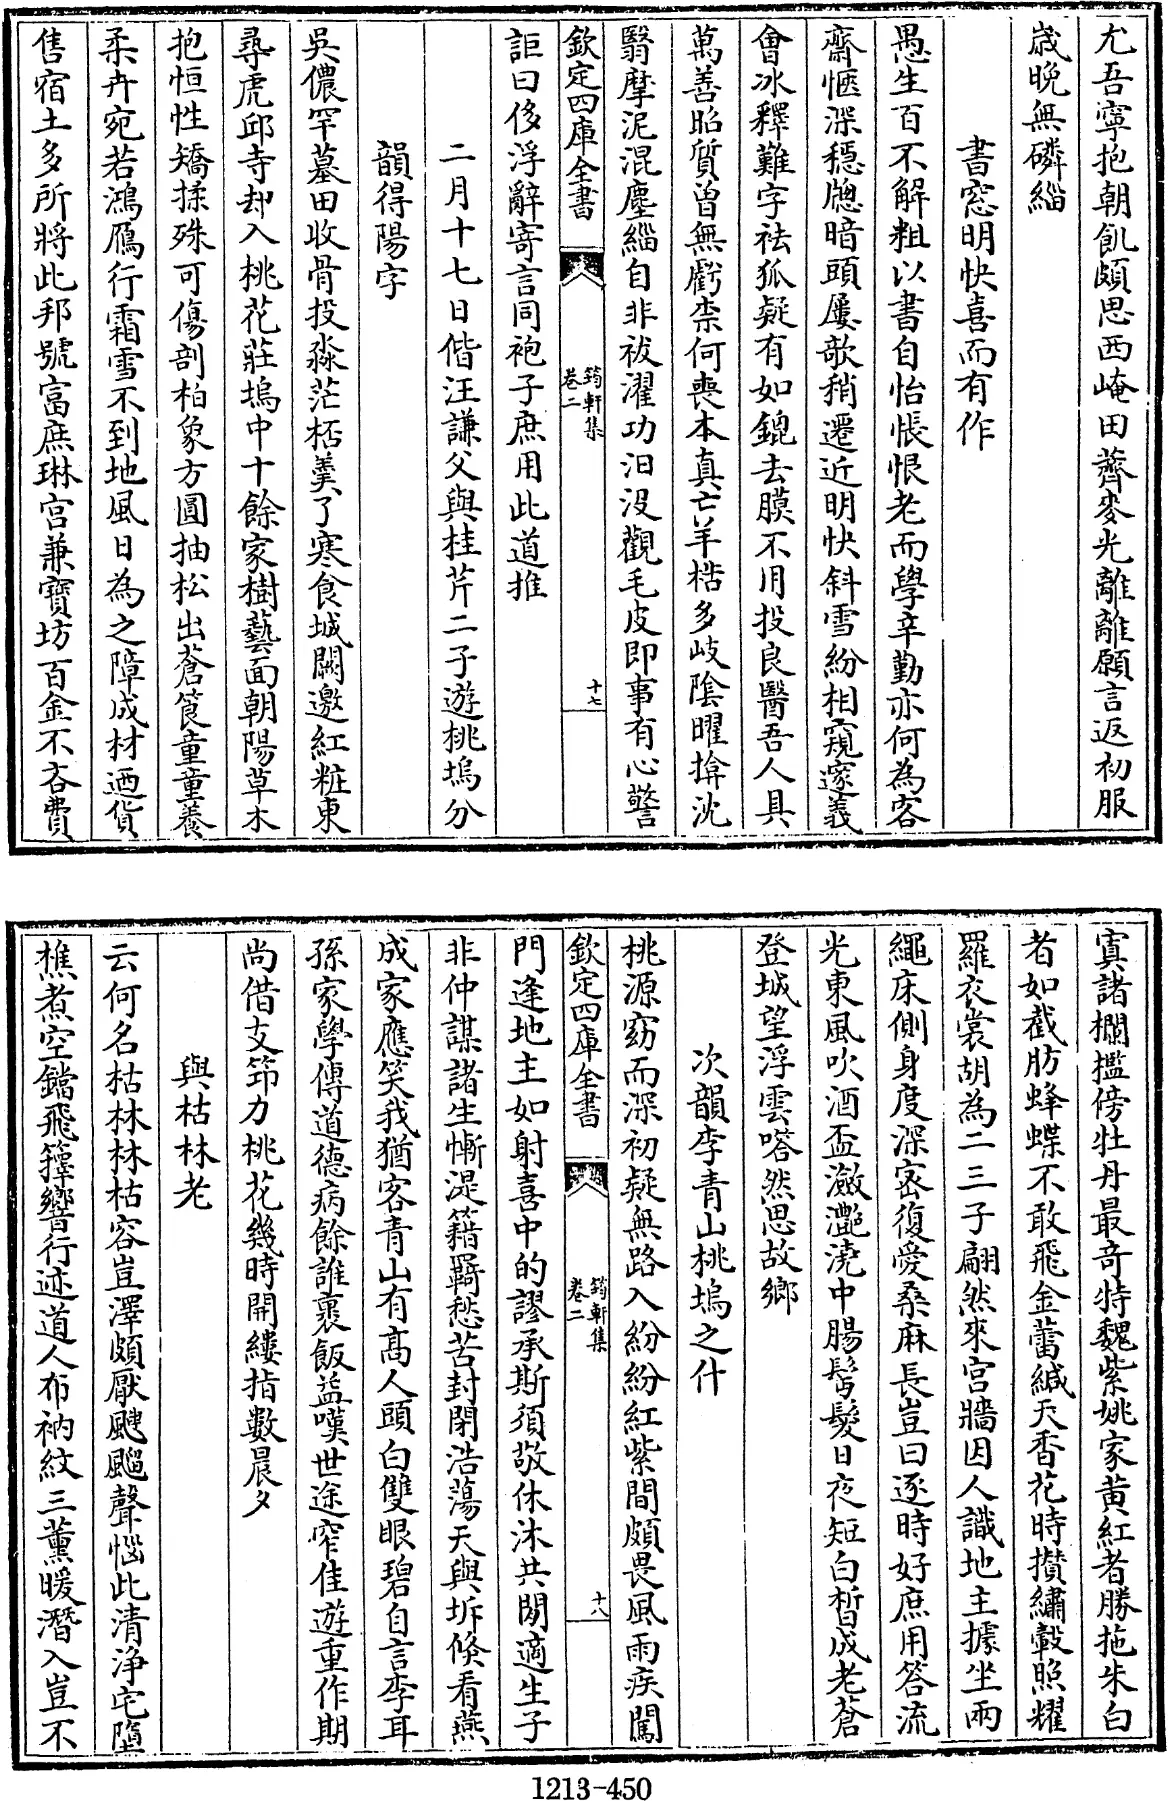 尤吾寧抱朝飢頗思西崦田薺麥光離離願言返初服
歲晩無磷緇
書窓明快喜而有作
愚生百不解粗以書自怡悵恨老而學辛勤亦何為客
齋愜深穩牕暗頭屢欹稍遷近明快斜雪紛相窺邃義
會冰釋難字祛狐疑有如鎞去膜不用投良醫吾人具
萬善昭質曾無虧柰何喪本真亡羊楛多岐陰曜揜沈
翳摩泥混塵緇自非祓濯功汨没觀毛皮即事有心警
欽定四庫全書
筠軒集
卷二
十七
詎曰侈浮辭寄言同袍子庶用此道推
二月十七日偕汪謙父與桂芹二子遊桃塢分
韻得陽字
吳儂罕墓田收骨投淼茫栝羮了寒食城闕邀紅粧東
尋虎邱寺却入桃花莊塢中十餘家樹藝面朝陽草木
抱恒性矯揉殊可傷剖柏象方圓抽松出蒼筤童童養
柔卉宛若鴻鴈行霜雪不到地風日為之障成材迺貨
售宿土多所將此邦號富庶琳宫兼寶坊百金不吝費
寘諸欄檻傍牡丹最竒特魏紫姚家黄紅者勝拖朱白
者如截肪蜂蝶不敢飛金蕾緘天香花時攅繡轂照耀
羅衣裳胡為二三子翩然來宫牆因人識地主據坐兩
繩床側身度深宻復愛桑麻長豈曰逐時好庶用答流
光東風吹酒盃瀲灧澆中腸髩髮日夜短白晳成老蒼
登城望浮雲嗒然思故鄉
次韻李青山桃塢之什
桃源窈而深初疑無路入紛紛紅紫間頗畏風雨疾闖
欽定四庫全書
筠軒集
卷二
十八
門逢地主如射喜中的謬承斯須敬休沐共閒適生子
非仲謀諸生慚湜籍羇愁苦封閉浩蕩天與坼倐看燕
成家應笑我猶客青山有髙人頭白雙眼碧自言李耳
孫家學傳道德病餘誰裹飯益嘆世途窄佳遊重作期
尚借支筇力桃花幾時開縷指數晨夕
與枯林老
云何名枯林林枯容豈澤頗厭颼飀聲惱此清浄宅墮
樵煮空鐺飛籜響行迹道人布衲紋三薫暖潛入豈不
1213-450